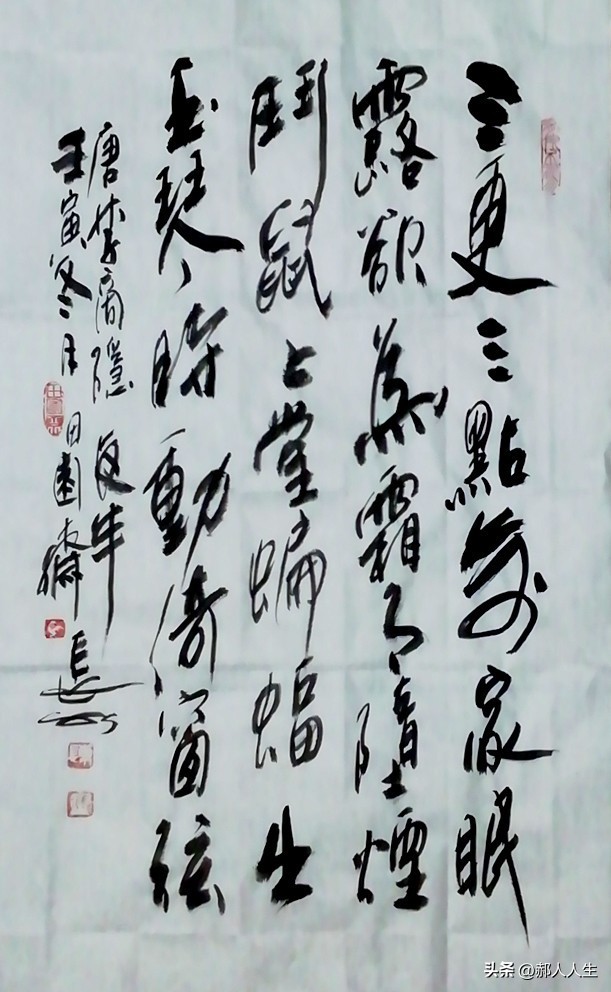 三更三點萬家眠
露欲為霜月墮煙
鬥鼠上堂蝙蝠出
玉琴時動倚窗弦
唐李商隱夜半
壬寅冬月田園齋
头条 @郝人人生